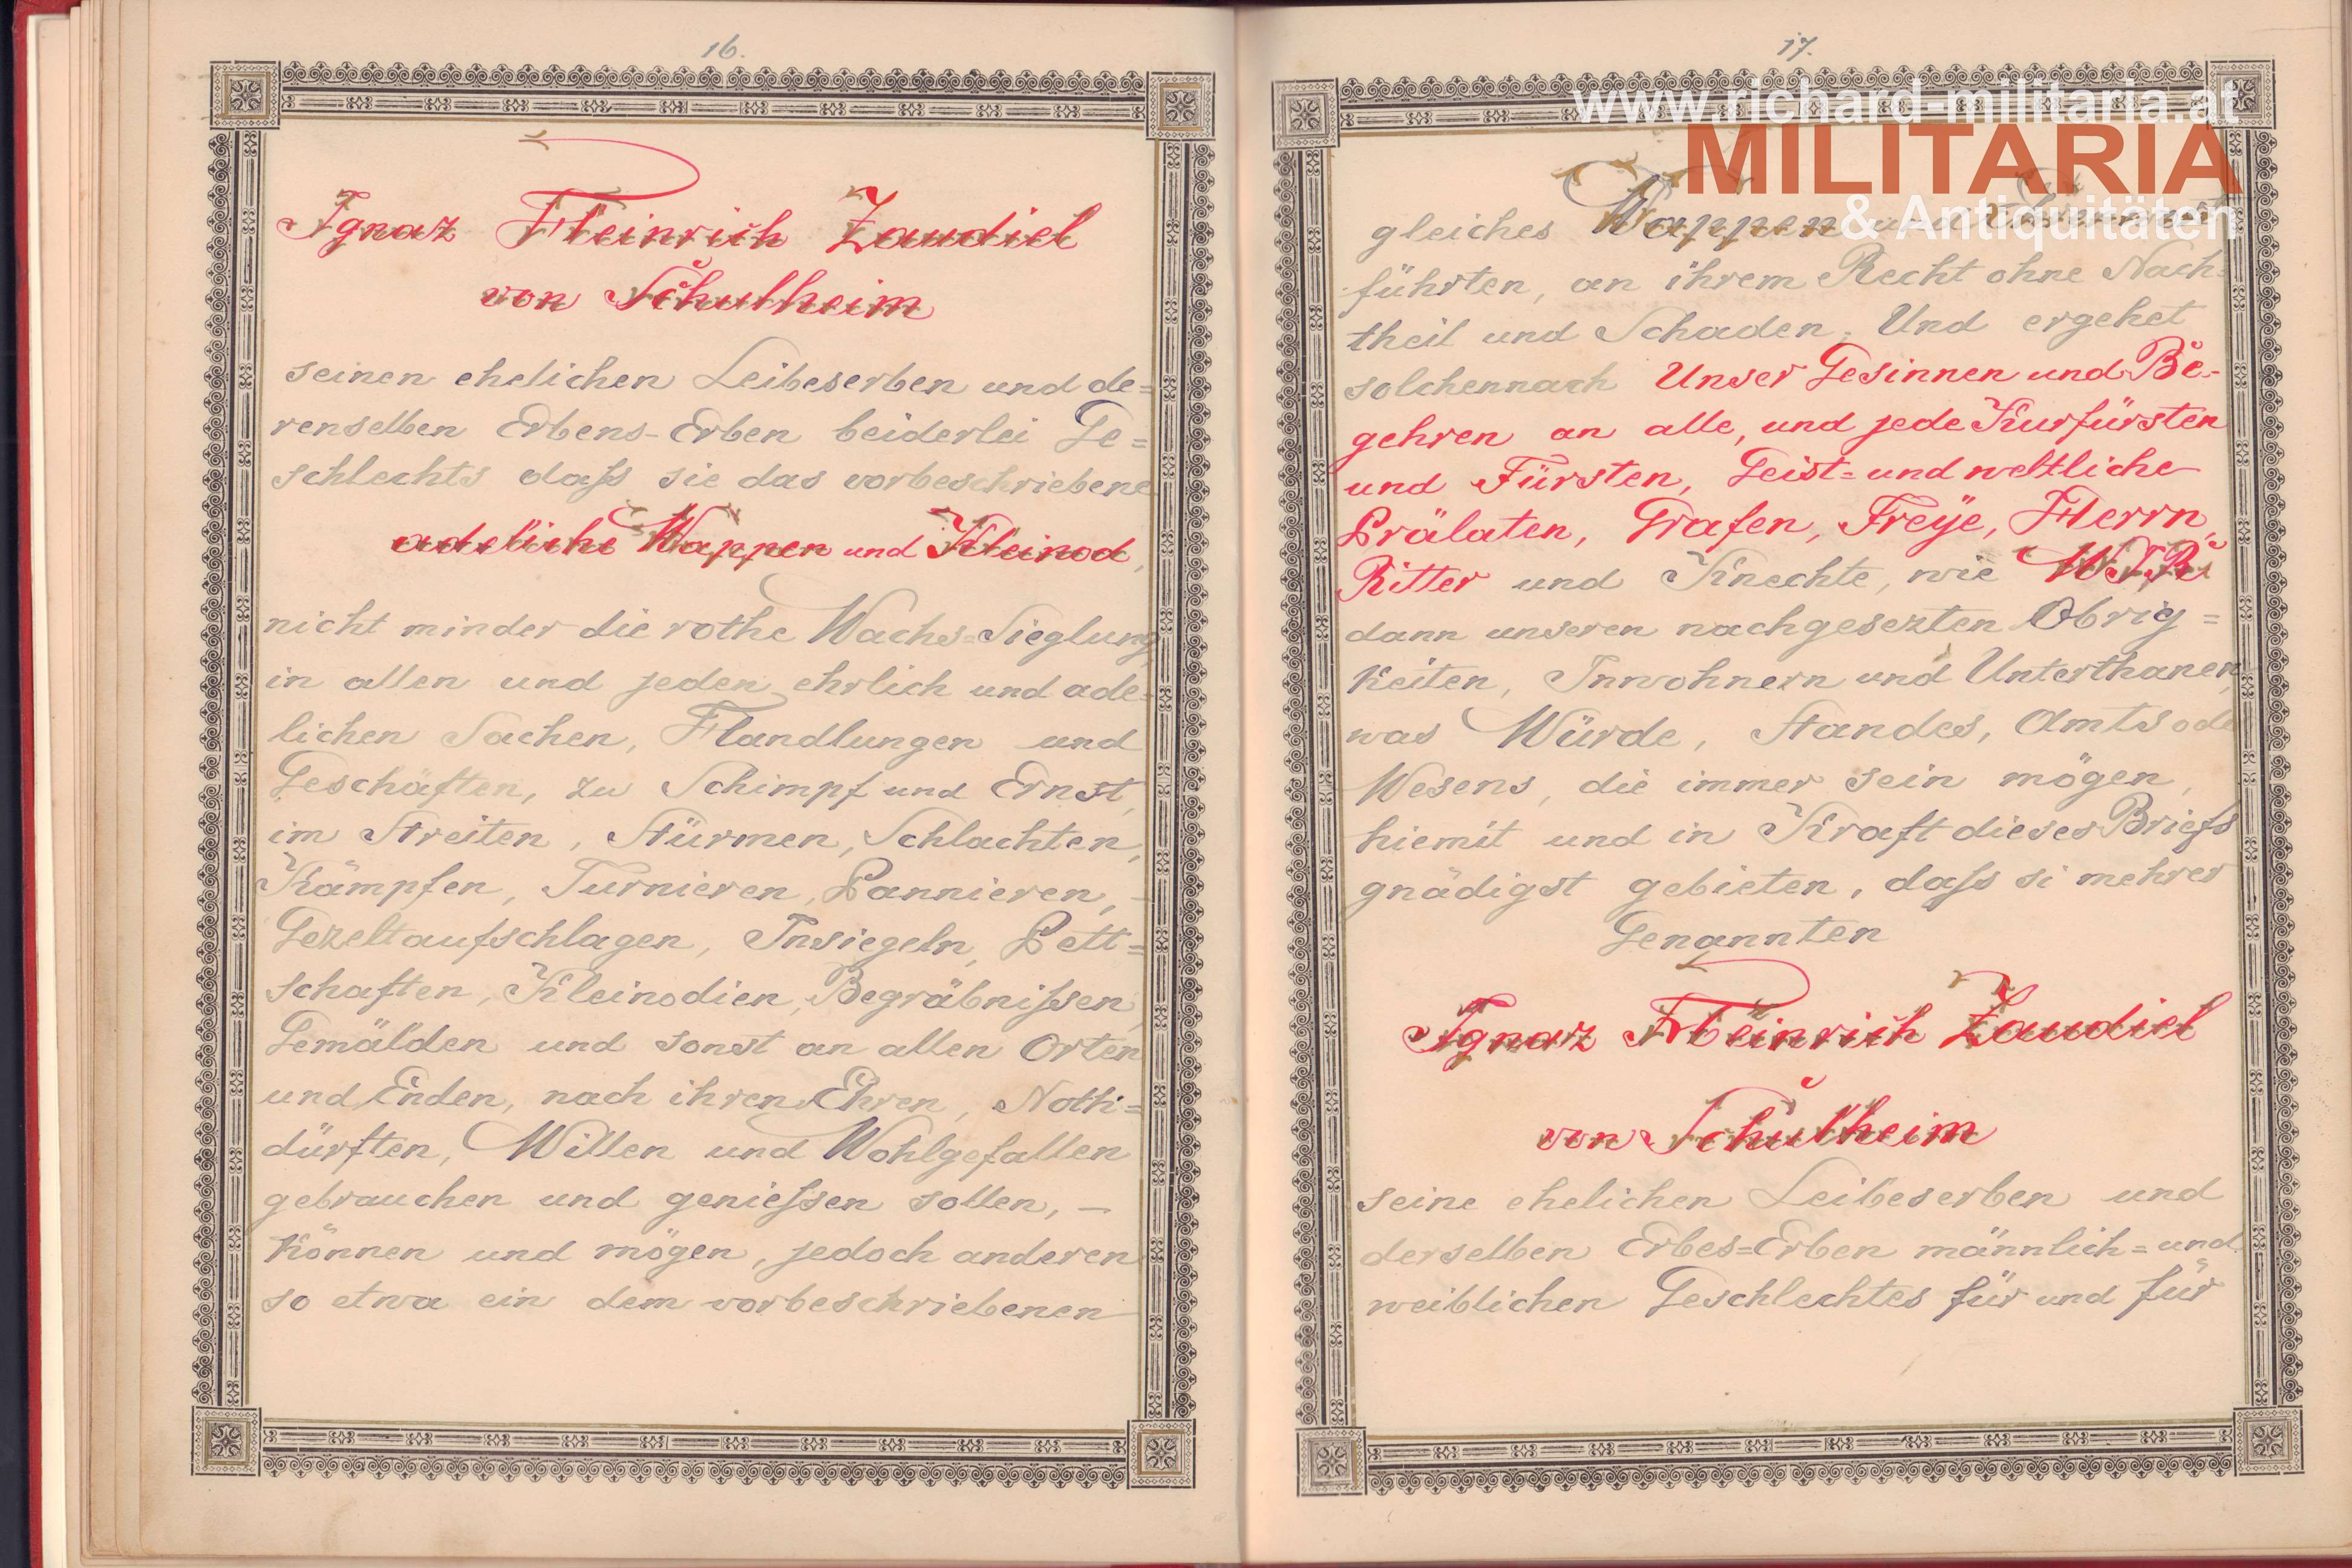 16.
Ignaz Heinrich Zaudiel
von Schulheim
seinen ehelichen Leibeserben und de=
renselben Erbens-Erben beiderlei Ge=
schlechts daſs sie das vorbeschriebene
adeliche Wappen und Kleinod,
nicht minder die rothe Wachs=Sieglung
in allen und jeden ehrlich und ade=
lichen Sachen, Handlungen und
Geschäften, zu Schimpf und Ernst,
im Streiten, Stürmen, Schlachten,
Kämpfen, Turnieren, Pannieren, -
Gezeltaufschlagen, Insiegeln, Pett=
schaften, Kleinodien, Begräbniſsen,
Gemälden und sonst an allen Orten
und Enden, nach ihren Ehren, Noth=
dürften, Willen und Wohlgefallen
gebrauchen und genieſsen sollen, —
können und mögen, jedoch anderen
so etwa ein dem vorbeschriebenen
17.
www.richard-militaria.at
MILITARIA
& Antiquitäten
gleiches Wappen und
führten, an ihrem Recht ohne Nach=
theil und Schaden. Und ergehet
solchennach Unser Gesinnen und Be-
gehren an alle, und jede Kurfürsten
und Fürsten, Geist=und weltliche
Prälaten, Grafen, Freÿe, Herrn,
Ritter und Knechte, wie
dann unseren nachgesezten Obrig=
keiten, Innwohnern und Unterthanen,
was Würde, Standes, Amts ode
Wesens, die immer sein mögen,
hiemit und in Kraft dieses Briefs
gnädigst gebieten, daſs si mehrer
Genannten
Ignaz Heinrich Zaudiel
von Schulheim
seine ehelichen Leibeserben und
derselben Erbes=Erben männlich=und
weiblichen Geschlechtes für und für